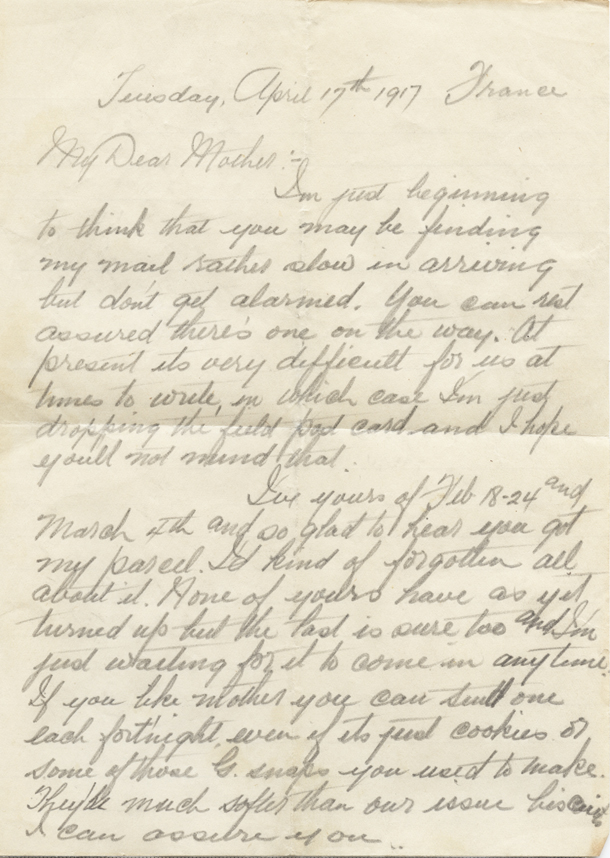 Tuesday, April 17th 1917 France
My Dear Mother:-
I'm just beginning
to think that you may be finding
my mail rather slow in arriving
but don't get alarmed. You can rest
assured there's one on the way. At
present its very difficult for us at
times to write, in which case I'm just
dropping the field post card and I hope
you'll not mind that.
I've yours of Feb 18-24 and
March 4th and so glad to hear you got
my parcel. I'd kind of forgotten all
about it. None of yours have as yet
turned up but the last is sure too and I'm
just waiting for it to come in anytime.
If you like mother you can send one
each fort'night, even if its just cookies or
some of those G. snaps you used to make.
They're much softer than our issue biscuits
I can assure you..